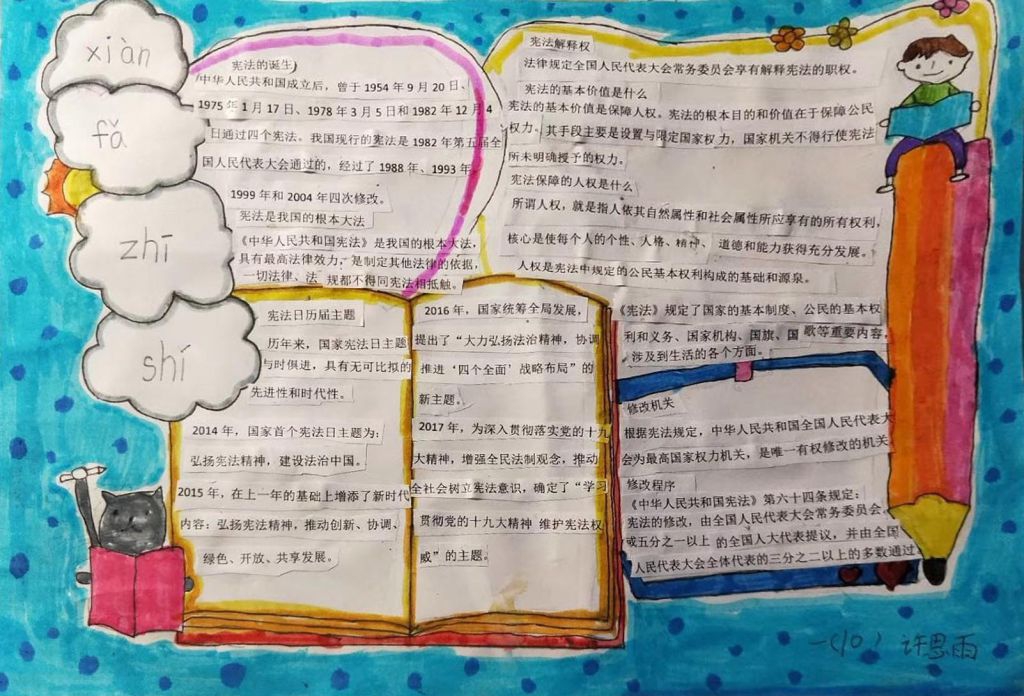 xiàn
fǎ
zhī
shí
宪法的诞生
中华人民共和国成立后，曾于 1954 年 9 月 20 日、
1975 年 1 月 17 日、1978 年 3 月 5 日和 1982 年 12 月 4
日通过四个宪法。我国现行的宪法是 1982 年第五届全
国人民代表大会通过的，经过了 1988 年、1993 年、
1999 年和 2004 年四次修改。
宪法是我国的根本大法
《中华人民共和国宪法》是我国的根本大法，
具有最高法律效力，是制定其他法律的依据，
一切法律、法 规都不得同宪法相抵触。
宪法解释权
法律规定全国人民代表大会常务委员会享有解释宪法的职权。
宪法的基本价值是什么
宪法的基本价值是保障人权。宪法的根本目的和价值在于保障公民
权力。其手段主要是设置与限定国家权力，国家机关不得行使宪法
所未明确授予的权力。
宪法保障的人权是什么
所谓人权，就是指人依其自然属性和社会属性所应享有的所有权利，
核心是使每个人的个性、人格、精神、道德和能力获得充分发展。
人权是宪法中规定的公民基本权利构成的基础和源泉。
《宪法》规定了国家的基本制度、公民的基本权
利和义务、国家机构、国旗、国 歌等重要内容，
涉及到生活的各个方面。
宪法日历届主题
历年来，国家宪法日主题
与时俱进，具有无可比拟的
先进性和时代性。
2014 年，国家首个宪法日主题为：
弘扬宪法精神，建设法治中国。
2015 年，在上一年的基础上增添了新时代
内容：弘扬宪法精神，推动创新、协调、
绿色、开放、共享发展。
2016 年，国家统筹全局发展，
提出了“大力弘扬法治精神，协调
推进‘四个全面’战略布局”的
新主题。
2017 年，为深入贯彻落实党的十九
大精神，增强全民法制观念，推动
全社会树立宪法意识，确定了“学习
贯彻党的十九大精神 维护宪法权
威”的主题。
修改机关
根据宪法规定，中华人民共和国全国人民代表大
会为最高国家权力机关，是唯一有权修改的机关
修改程序
《中华人民共和国宪法》第六十四条规定：
宪法的修改，由全国人民代表大会常务委员会
或五分之一以上 的全国人大代表提议，并由全国
人民代表大会全体代表的三分之二以上的多数通过
一（10） 许思雨